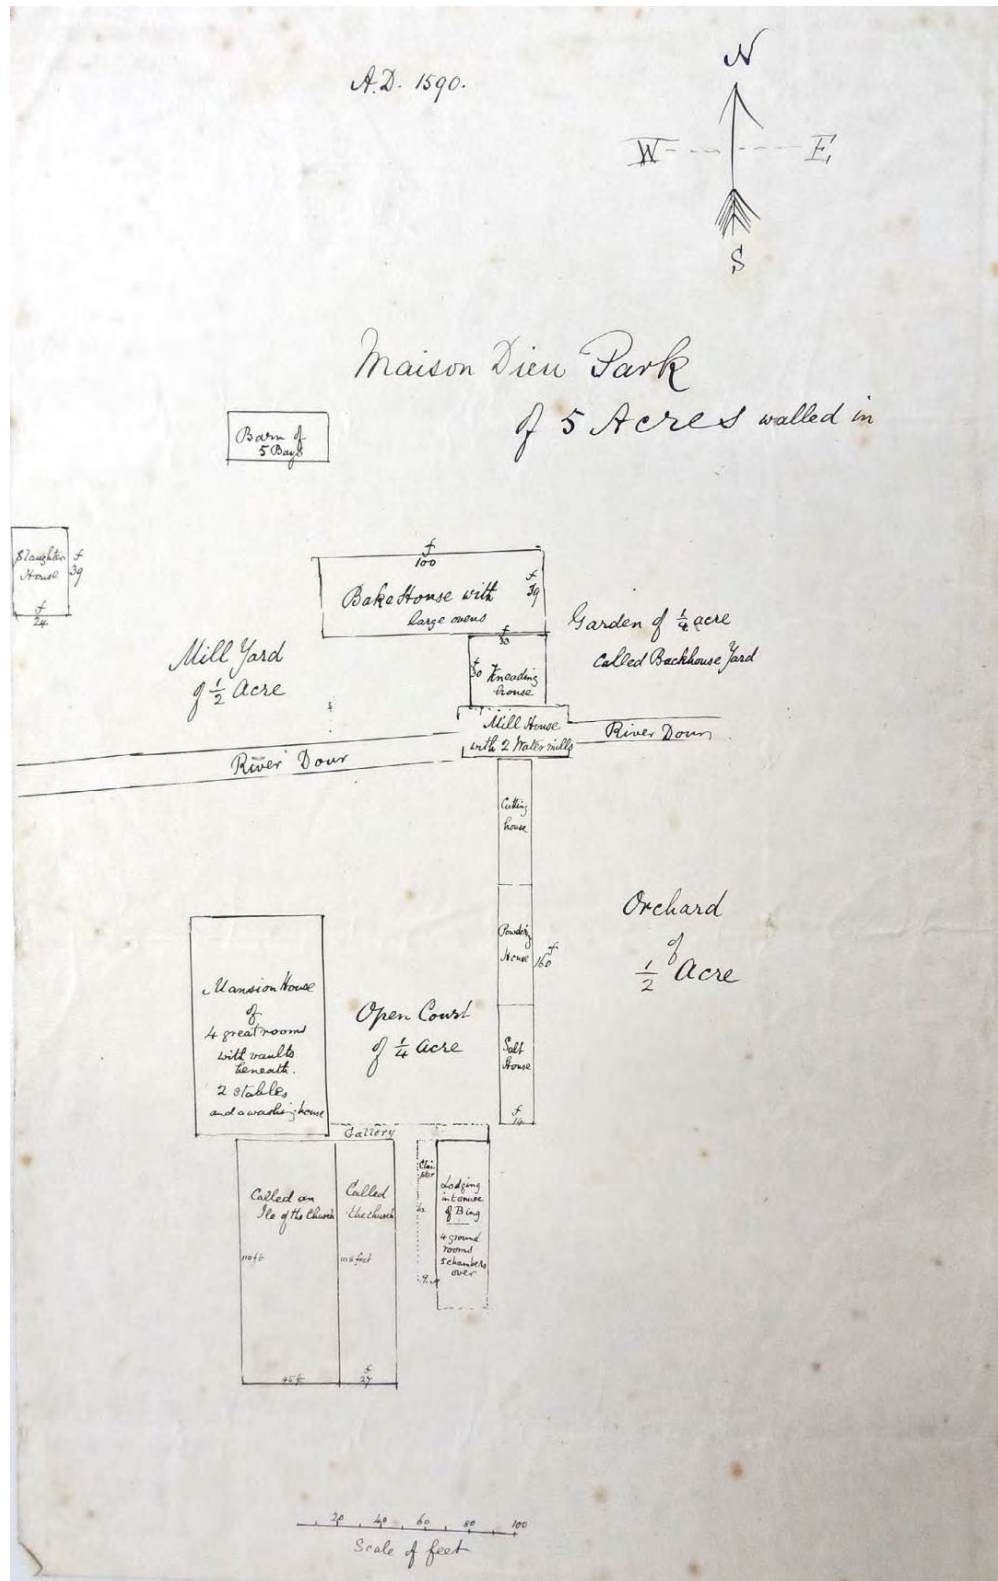 A.D. 1590.
N
W
E
S
Maison Dieu Park
of 5 Acres walled in
Barn of
5 Bays
Slaughter
House
f
39
f
24
f
100
Bake House with
large ovens
f
39
Garden of 1/4 acre
called Backhouse Yard
Mill Yard
of 1/2 Acre
f
30
f
30
Kneading
house
Mill House
with 2 Watermills
River Dour
River Dour
Cutting
house
House
f
160
Salt
House
f
14
Orchard
of
1/2 Acre
Mansion House
of
4 great rooms
with vaults
beneath.
2 stables
and a washing house
Open Court
of 1/4 Acre
Gallery
Called an
Ile of the Church
110 ft
45 ft
Called
the church
108 feet
f
27
Cloi
ster
Lodging
in tenure
of Bing
4 ground
rooms
5 chambers
over
20 40 60 80 100
Scale of feet